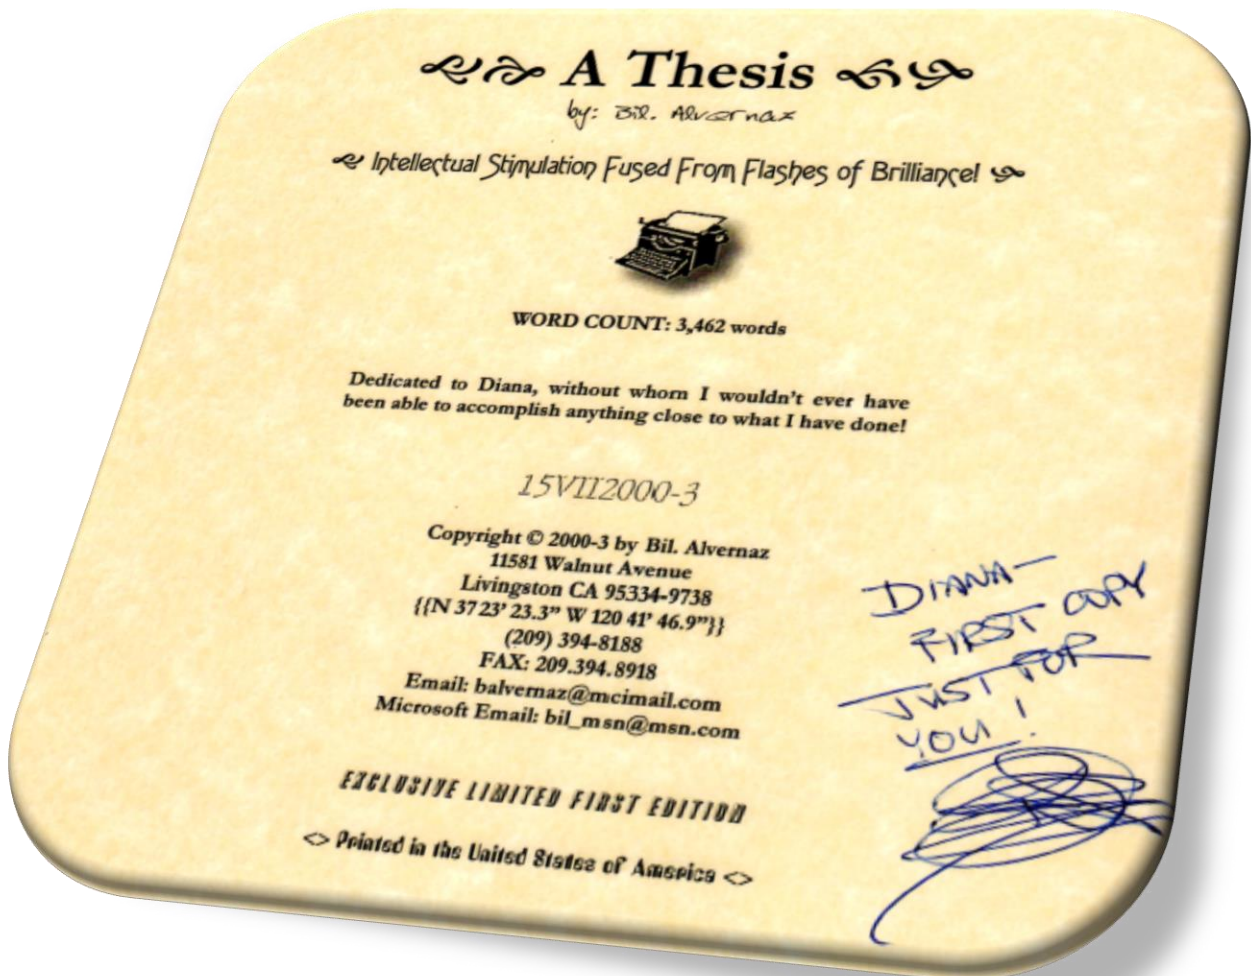 A Thesis
by: Bil. Alvernax
Intellectual Stimulation Fused From Flashes of Brilliance!
WORD COUNT: 3,462 words
Dedicated to Diana, without whom I wouldn't ever have
been able to accomplish anything close to what I have done!
15VII2000-3
Copyright © 2000-3 by Bil. Alvernaz
11581 Walnut Avenue
Livingston CA 95334-9738
{{N 37 23' 23.3" W 120 41' 46.9"}}
(209) 394-8188
FAX: 209.394.8918
Email: balvernaz@mcimail.com
Microsoft Email: bil_msn@msn.com
EXCLUSIVE LIMITED FIRST EDITION
<> Printed in the United States of America <>
DIANA—
FIRST COPY
JUST FOR
YOU!